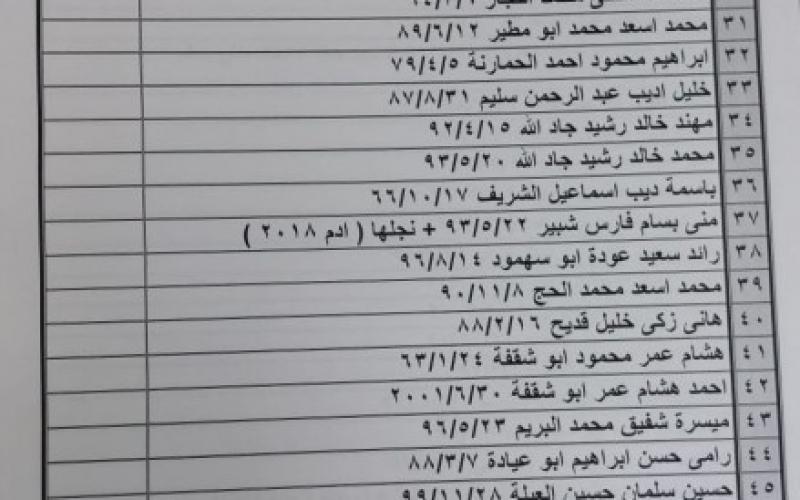 ٣١ محمد اسعد محمد ابو مطير ٨٩/٦/١٢
٣٢ ابراهيم محمود احمد الحمارنة ٧٩/٤/٥
٣٣ خليل اديب عبد الرحمن سليم ٨٧/٨/٣١
٣٤ مهند خالد رشيد جاد الله ٩٢/٤/١٥
٣٥ محمد خالد رشيد جاد الله ٩٣/٥/٢٠
٣٦ باسمة ديب اسماعيل الشريف ٦٦/١٠/١٧
٣٧ منى بسام فارس شبير ٩٣/٥/٢٢ + نجلها ( ادم ٢٠١٨ )
٣٨ رائد سعيد عودة ابو سهمود ٩٦/٨/١٤
٣٩ محمد اسعد محمد الحج ٩٠/١١/٨
٤٠ هانى زكى خليل قديح ٨٨/٢/١٦
٤١ هشام عمر محمود ابو شقفة ٦٣/١/٢٤
٤٢ احمد هشام عمر ابو شقفة ٢٠٠١/٦/٣٠
٤٣ ميسرة شفيق محمد البريم ٩٦/٥/٢٣
٤٤ رامى حسن ابراهيم ابو عيادة ٨٨/٣/٧
٤٥ حسين سلمان حسين العيلة ٩٩/١١/٢٨